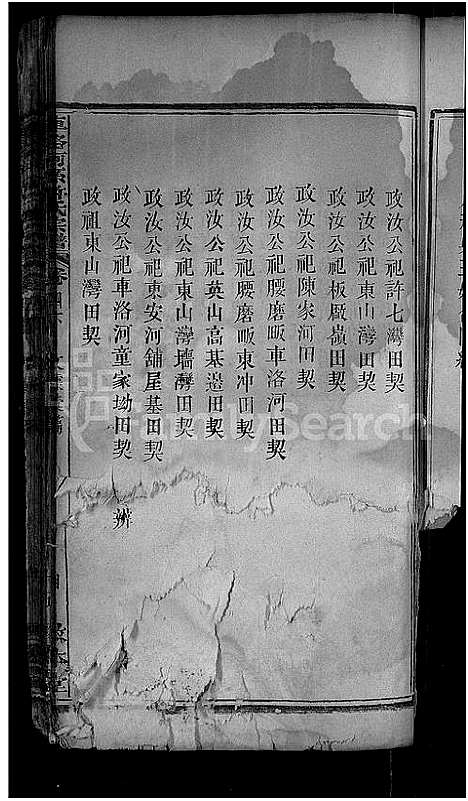 政汝公祀許七灣田契
政汝公祀東山灣田契
政汝公祀板厫嶺田契
政汝公祀陳家河田契
政汝公祀腰磨畈車洛河田契
政汝公祀腰磨畈東冲田契
政汝公祀英山高基邉田契
政汝公祀東山灣墻灣田契
政汝公祀東安河舖屋基田契
政汝公祀車洛河童家坳田契
辨
政祖東山灣田契
FamilySearch